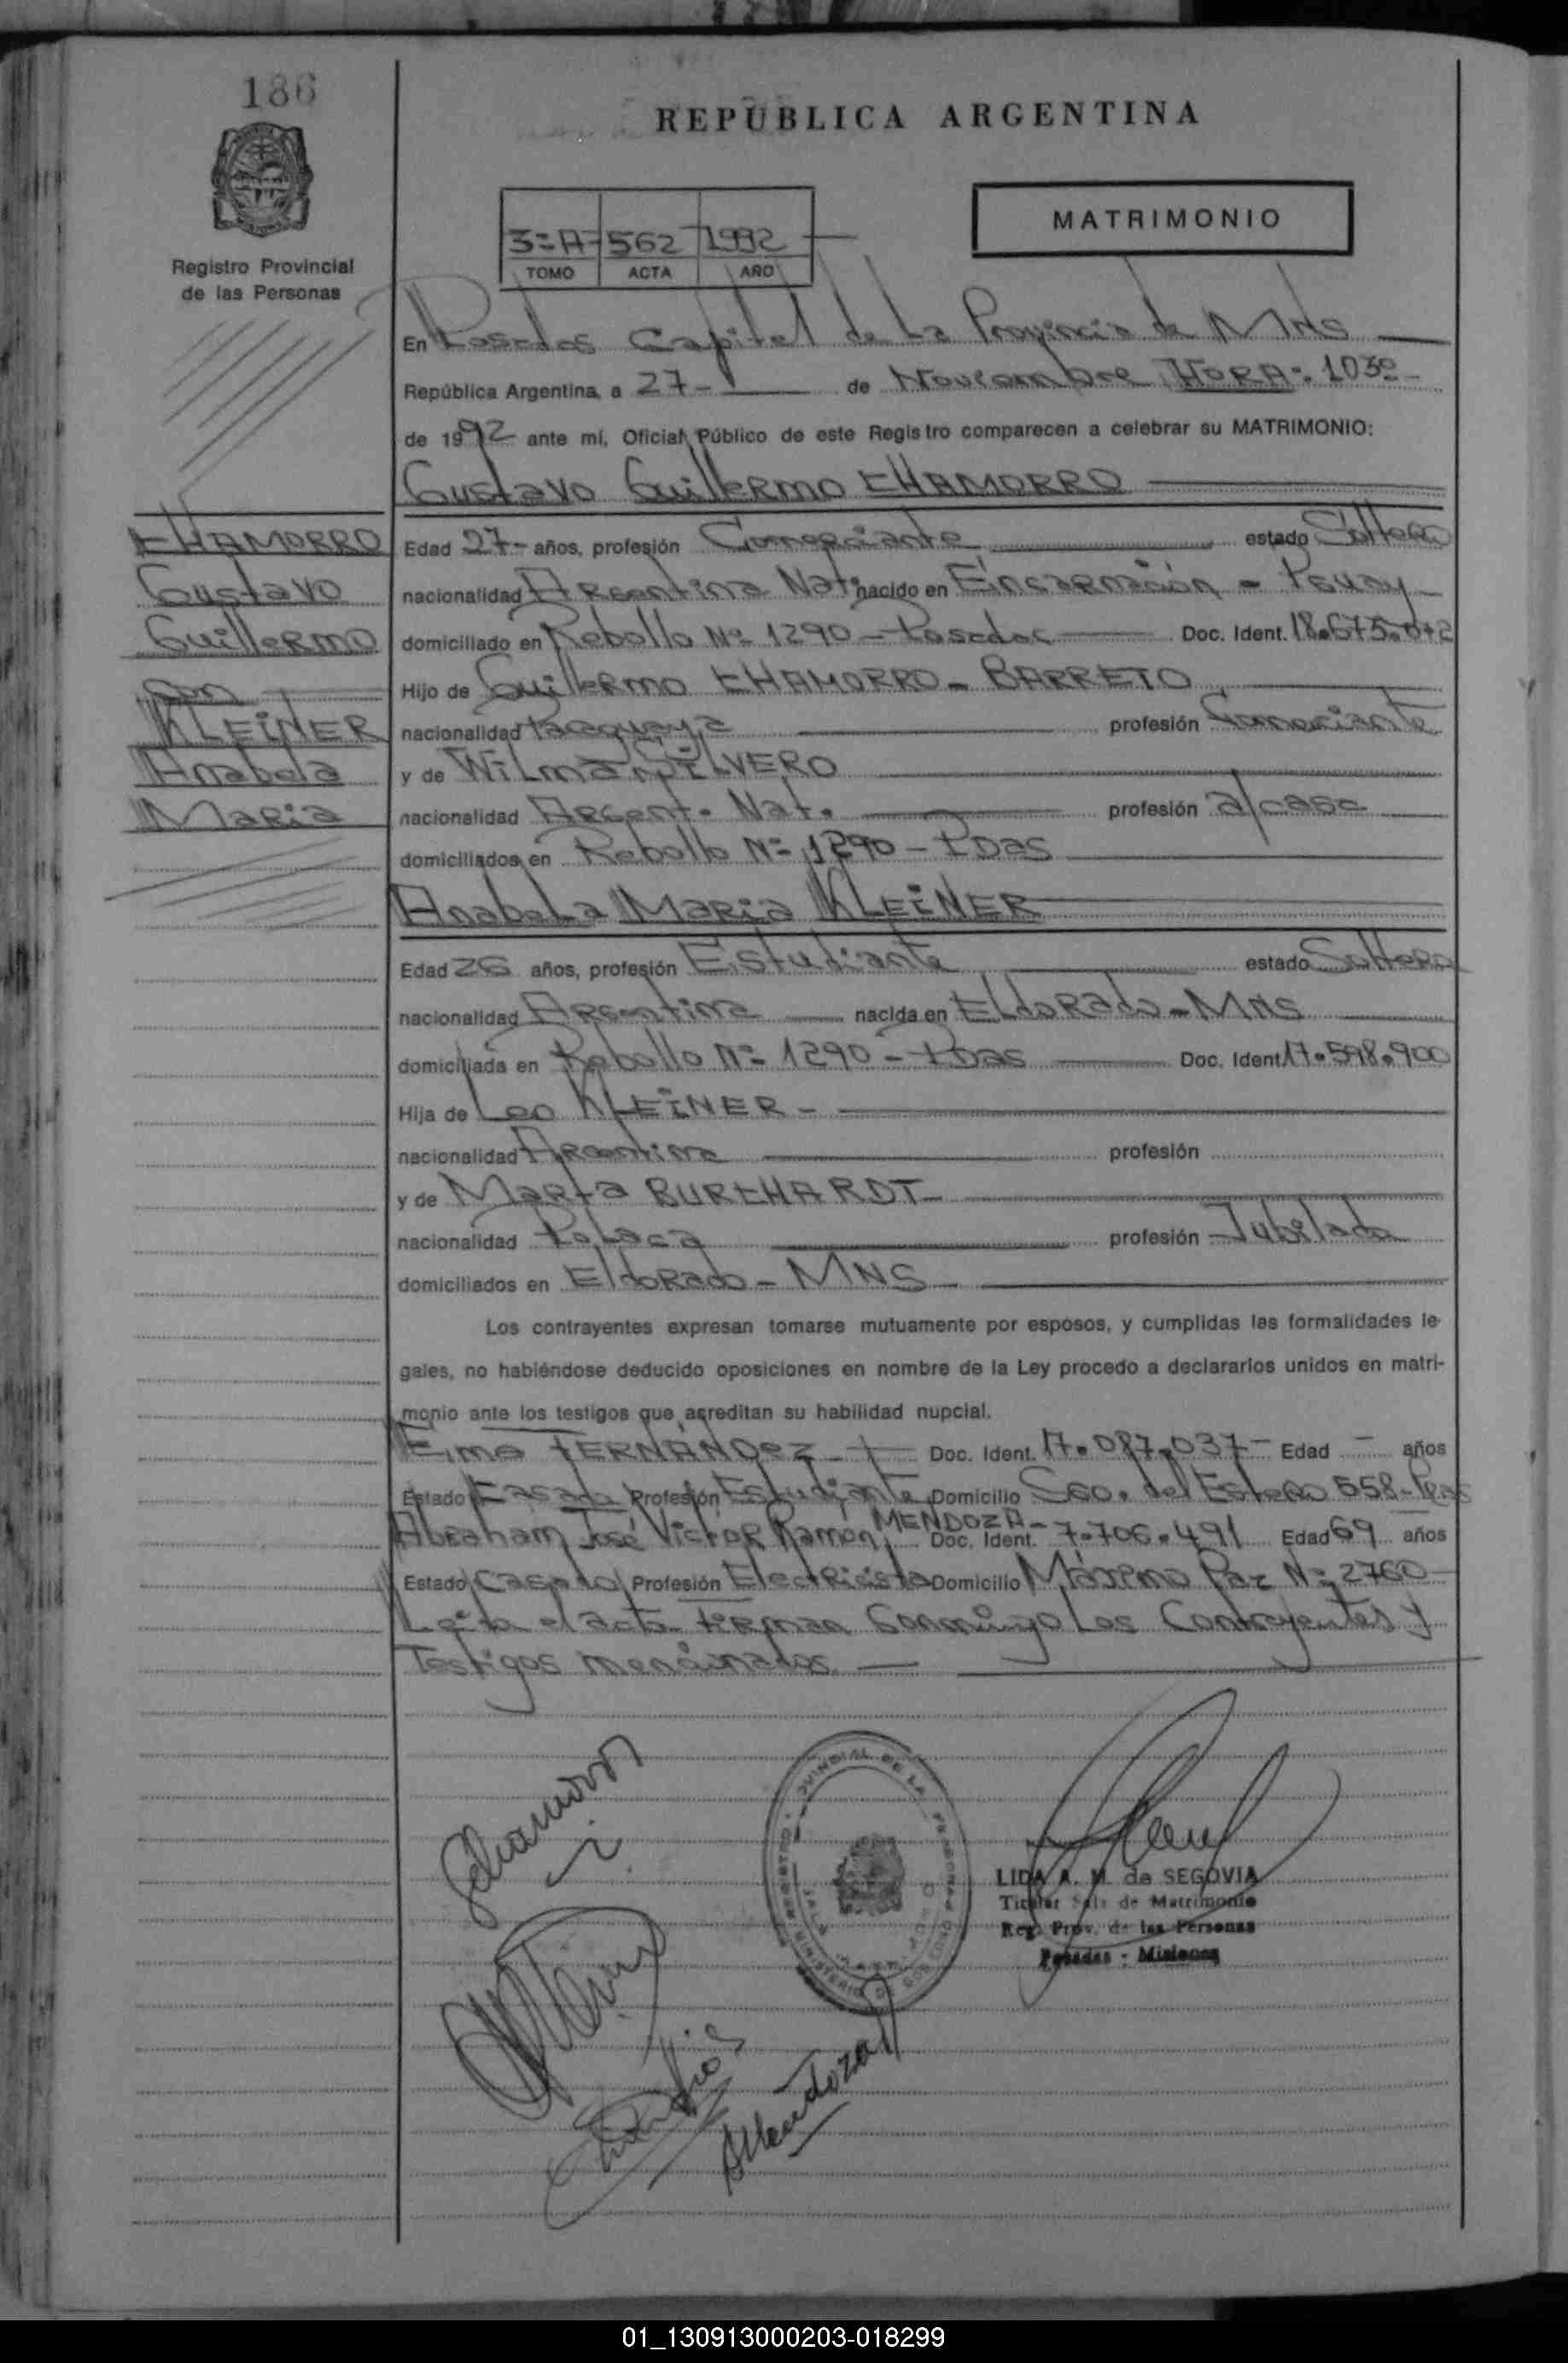 186
REPUBLICA ARGENTINA
Registro Provincial
de las Personas
3=A- 562 1992
TOMO ACTA AÑO
MATRIMONIO
En Posadas Capital de La Provincia de MNS
República Argentina, a 27- de Noviembre HORA: 1030-
de 1992 ante mí, Oficial Público de este Registro comparecen a celebrar su MATRIMONIO:
Gustavo Guillermo CHAMORRO
CHAMORRO
Gustavo
Guillermo
Con
KLEiNER
Anabela
Maria
Edad 27- años, profesión Comerciante estado Soltero
nacionalidad Argentina Nat. nacido en Encarnación - Pguay
domiciliado en Rebollo Nº 1290 - Posadas Doc. Ident. 18.675.042
Hijo de Guillermo CHAMORRO - BARRETO
nacionalidad Paraguaya profesión Comerciante
y de Wilma SILVERO
nacionalidad Argent. Nat. profesión a/casa
domiciliados en Rebollo Nº 1290 - PDas
Anabela Maria KLEiNER
Edad 26 años, profesión Estudiante estado Soltera
nacionalidad Argentina nacida en ELdoRado - MNS
domiciliada en Rebollo Nº 1290 - PDas Doc. Ident. 17.598.900
Hija de Leo KLEiNER -
nacionalidad Argentina profesión
y de Marta BURCHARDT
nacionalidad Polaca profesión Jubilada
domiciliados en EldoRado - MNS
Los contrayentes expresan tomarse mutuamente por esposos, y cumplidas las formalidades le-
gales, no habiéndose deducido oposiciones en nombre de la Ley procedo a declararlos unidos en matri-
monio ante los testigos que acreditan su habilidad nupcial.
FERNÁNDEZ Doc. Ident. 17.087.037- Edad - años
Estado Casada Profesión Estudiante Domicilio Sgo. del Estero 558-
Abraham José Victor Ramón MENDOZA - Doc. Ident. 7.706.491 Edad 69 años
Estado Casado Profesión Electricista Domicilio Máximo Paz Nº 2760
Leida el acta firman Conmigo Los Contrayentes y
Testigos mencionados.
LIDA A. M. de SEGOVIA
Titular Sala de Matrimonio
Reg. Prov. de las Personas
Posadas - Misiones
AMendoza
01_130913000203-018299